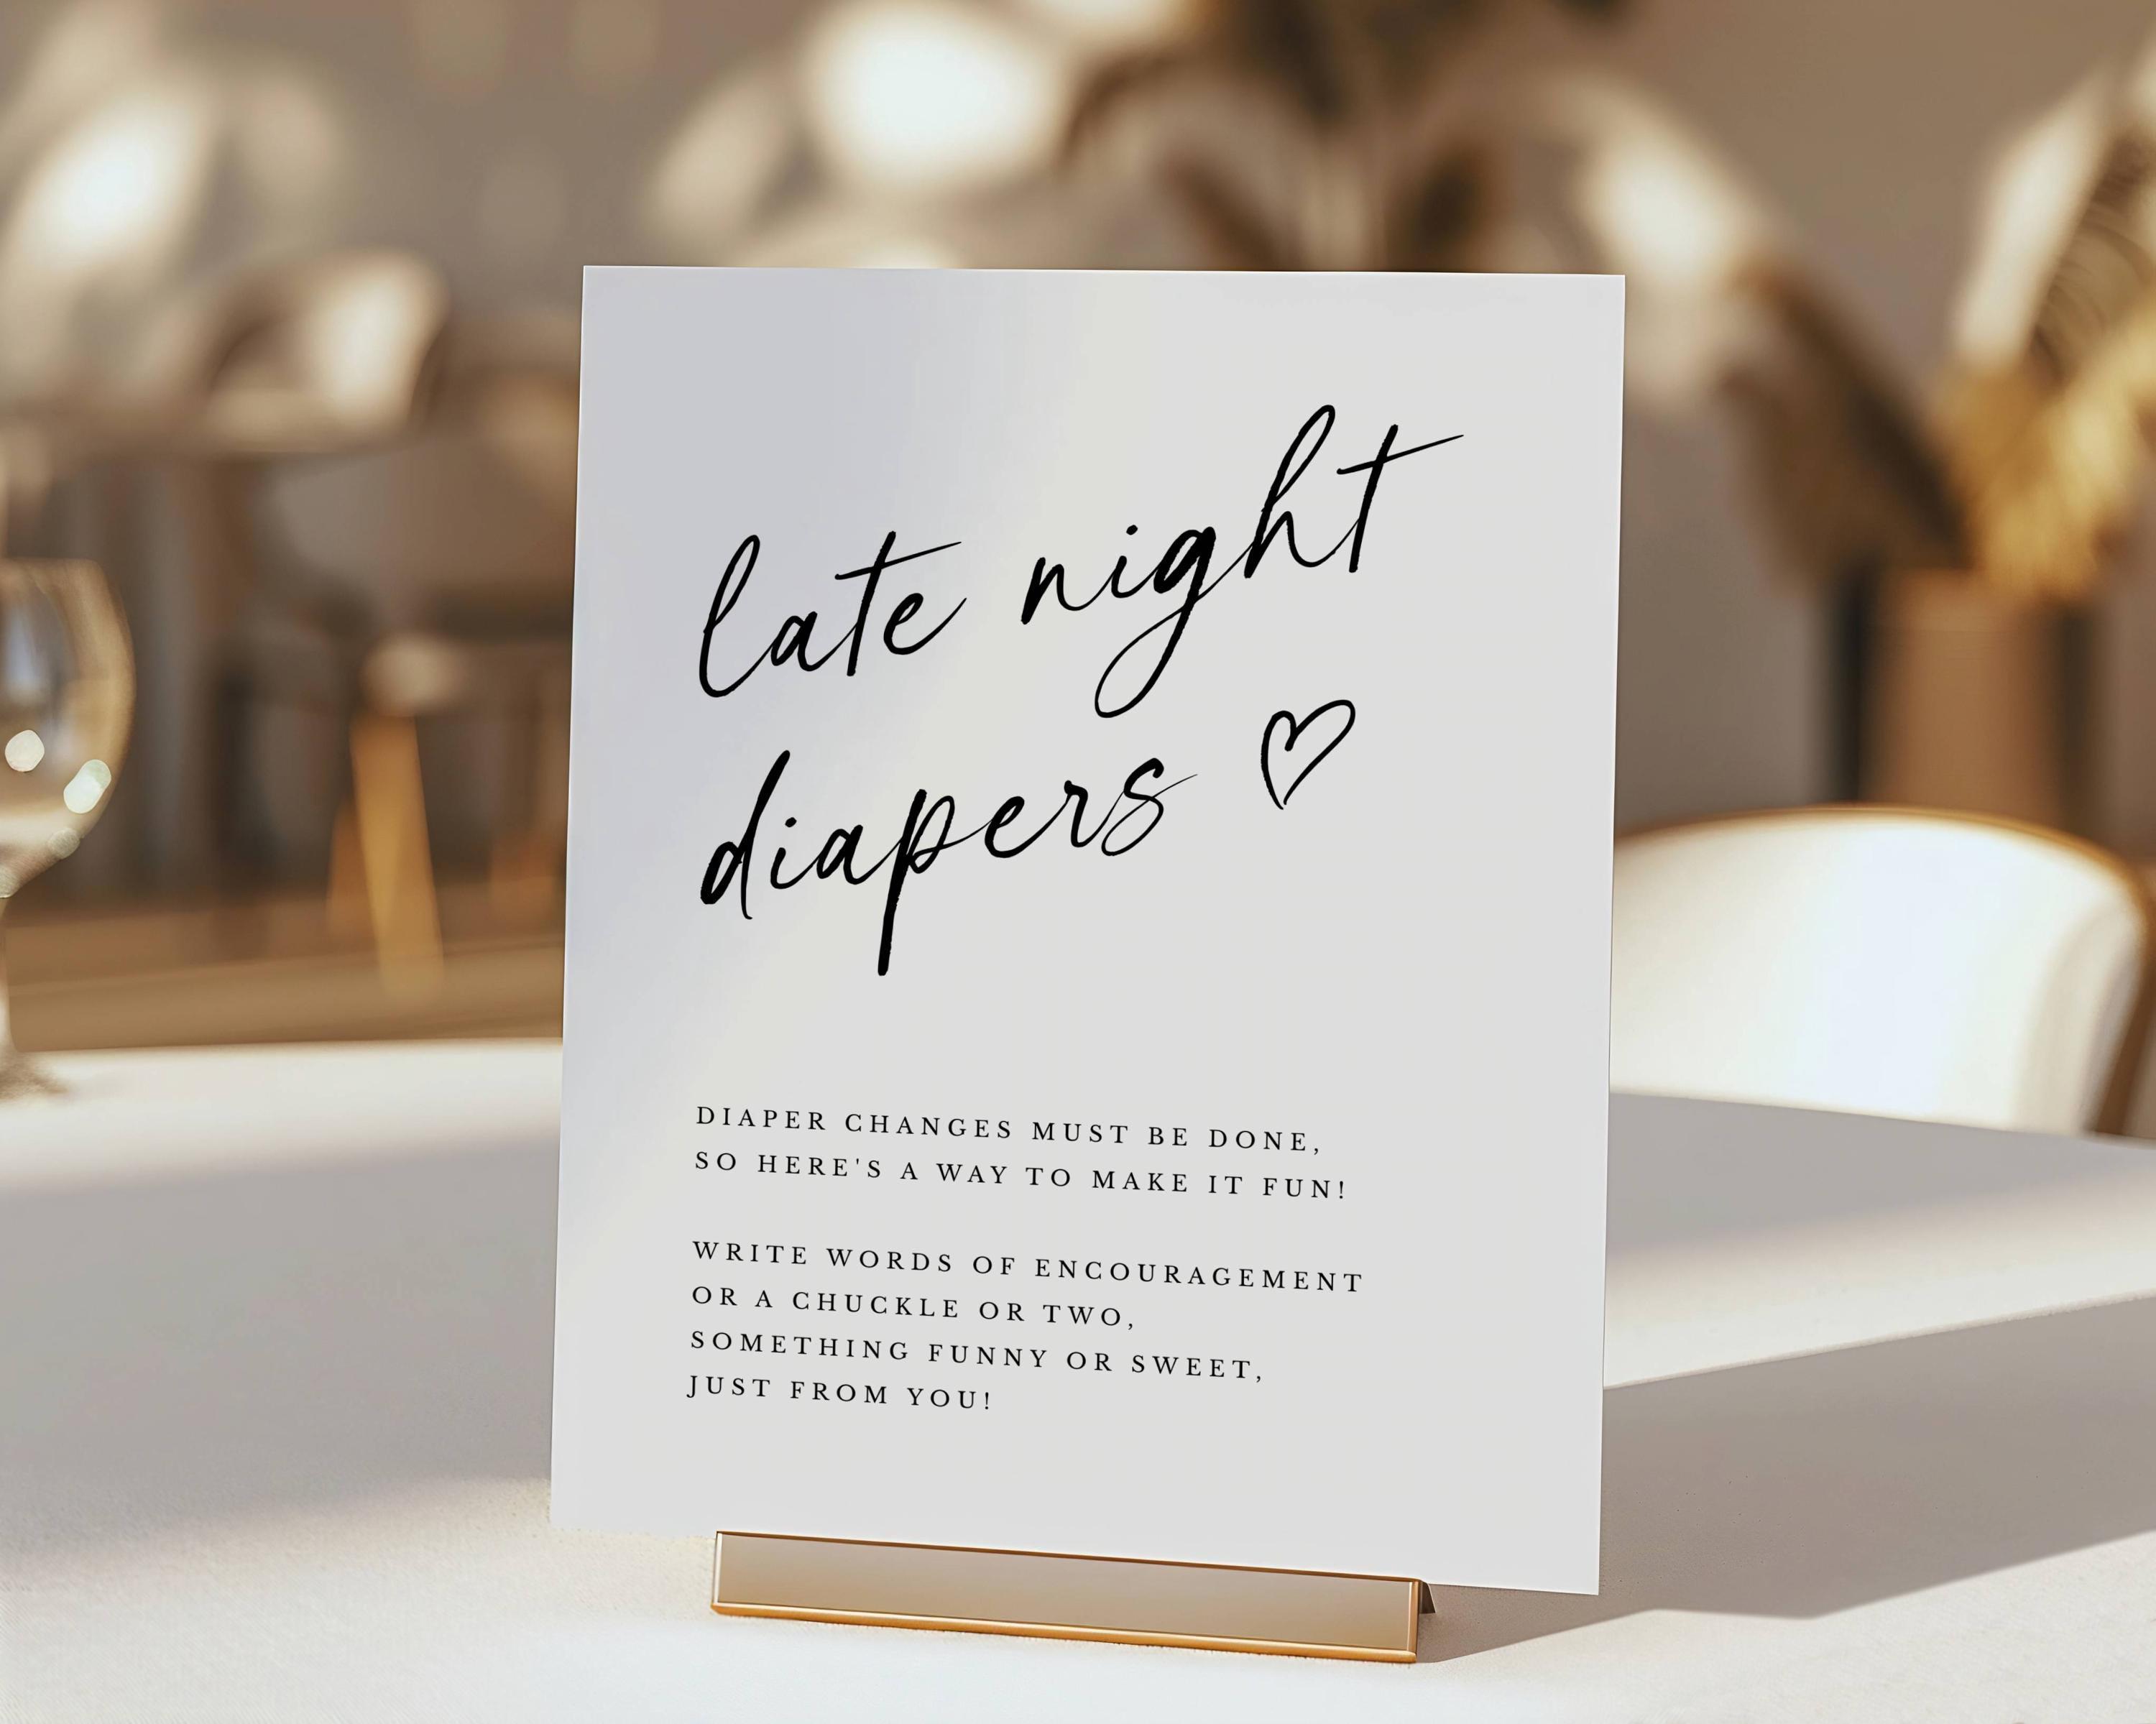 late night
diapers
DIAPER CHANGES MUST BE DONE,
SO HERE'S A WAY TO MAKE IT FUN!
WRITE WORDS OF ENCOURAGEMENT
OR A CHUCKLE OR TWO,
SOMETHING FUNNY OR SWEET,
JUST FROM YOU!